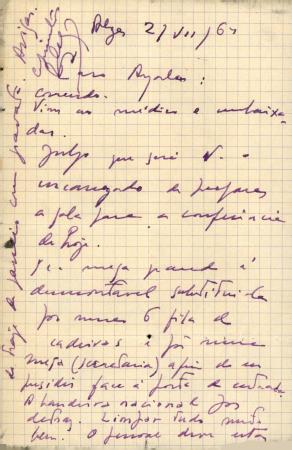 Alger 27/VII/63
Caro Ayala :
Vim ao médico e embaixa-
das.
Julgo que será V. o
encarregado de preparar
a sala para a conferência
de hoje.
Se a mesa grande é
desmontável substitui-la
por umas 6 fila de
cadeiras e pôr uma
mesa (secretaria) afim de eu
presidir face à porta de entrada.
A bandeira nacional por
detrás. Limpar tudo muito
bem. O pessoal deve estar
de fato de
com gravata. Avisa.